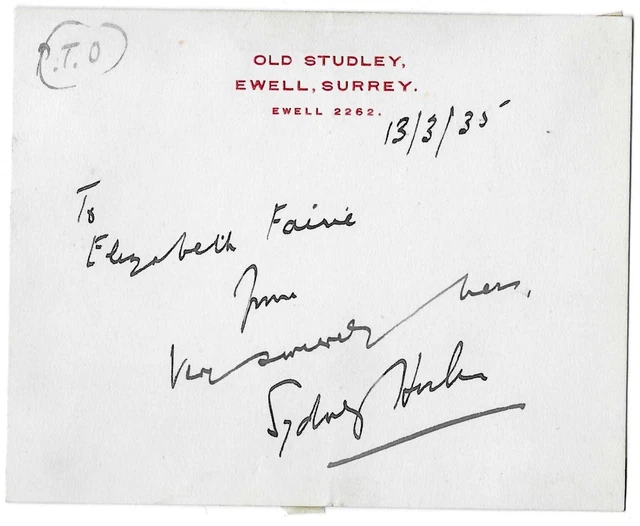 P.T.O
OLD STUDLEY,
EWELL, SURREY.
EWELL 2262.
13/3/35
To
Elizabeth Fairie
from
Very sincerely hers,
Sydney Horler